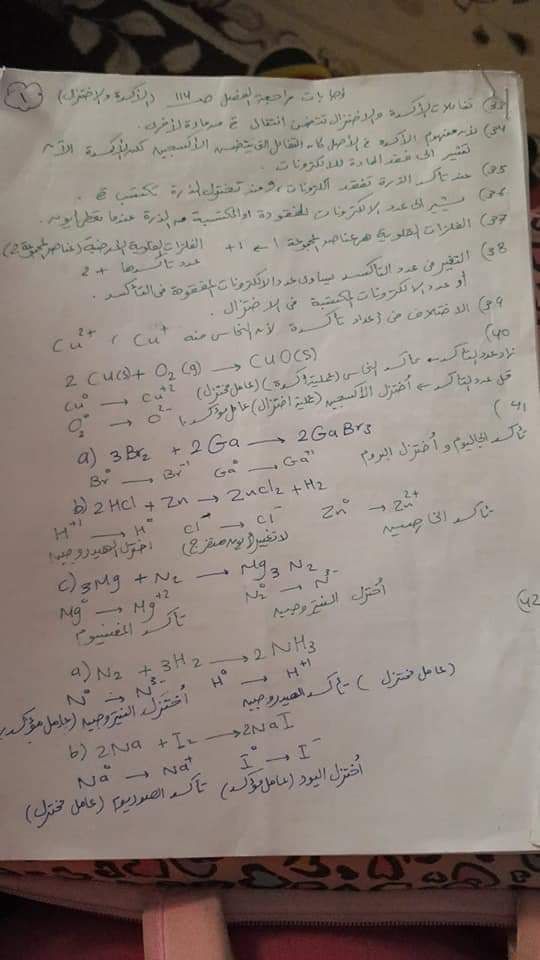 ١
إجابات مراجعة الفصل ص 114 (الأكسدة والاختزال)
33) تفاعلات الأكسدة والاختزال تتضمن انتقال e من مادة لأخرى.
34) لأن مفهوم الأكسدة في الأصل كان التفاعل التي يتضمن الأكسجين لكن الأكسدة الآن
تشير إلى فقد المادة للإلكترونات
35) عند تأكسد الذرة تفقد إلكترونات، وعند تختزل الذرة تكتسب e.
36) تشير إلى عدد الإلكترونات المفقودة أو المكتسبة من الذرة عندما تعطي أيون.
37) الفلزات القلوية هم عناصر المجموعة 1 ← +1 الفلزات القلوية الأرضية (عناصر المجموعة 2)
عدد تأكسدها +2
38) التغير في عدد التأكسد يساوي عدد الإلكترونات المفقودة في التأكسد.
أو عدد الإلكترونات المكتسبة في الاختزال.
39) الاختلاف في أعداد تأكسدة لأن النحاس منه Cu⁺ ، Cu²⁺
40) 2 Cu(s) + O₂(g) → CuO(s)
Cu⁰ → Cu⁺² زاد عدد التأكسد ← تأكسد النحاس (عملية أكسدة) (عامل مختزل)
O₂⁰ → O²⁻ قل عدد التأكسد ← أختزل الأكسجين (عملية اختزال) (عامل مؤكسد)
41)
a) 3Br₂ + 2Ga → 2GaBr₃
Br⁰ → Br⁻¹ Ga⁰ → Ga⁺¹ تأكسد الجاليوم و أختزل البروم
b) 2HCl + Zn → ZnCl₂ + H₂
H⁺¹ → H⁰ Cl⁻ → Cl⁻ Zn⁰ → Zn²⁺
اختزل الهيدروجين لا تغير (أيون متفرج) تأكسد الخارصين
c) 3Mg + N₂ → Mg₃N₂
Mg⁰ → Mg⁺² N₂⁰ → N³⁻
تأكسد المغنسيوم أختزل النيتروجين
42)
a) N₂ + 3H₂ → 2NH₃
N⁰ → N³⁻ H⁰ → H⁺¹
أختزل النيتروجين (عامل مؤكسد) تأكسد الهيدروجين (عامل مختزل)
b) 2Na + I₂ → 2NaI
Na⁰ → Na⁺ I⁰ → I⁻
تأكسد الصوديوم (عامل مختزل) أختزل اليود (عامل مؤكسد)